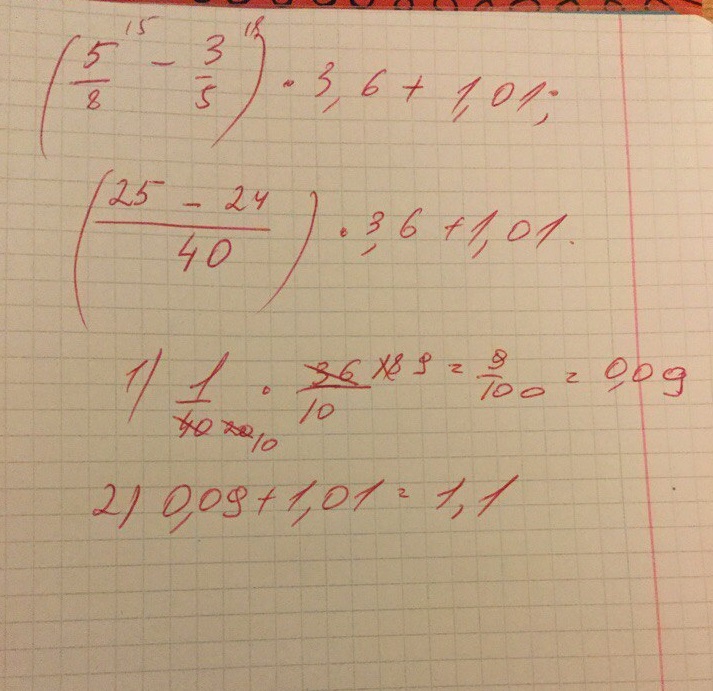 (5/8 |5 - 3/5 |8) · 3,6 + 1,01;
(25 - 24/40) · 3,6 + 1,01.
1) 1/40 20 10 · 36/10 18 9 = 9/100 = 0,09
2) 0,09 + 1,01 = 1,1